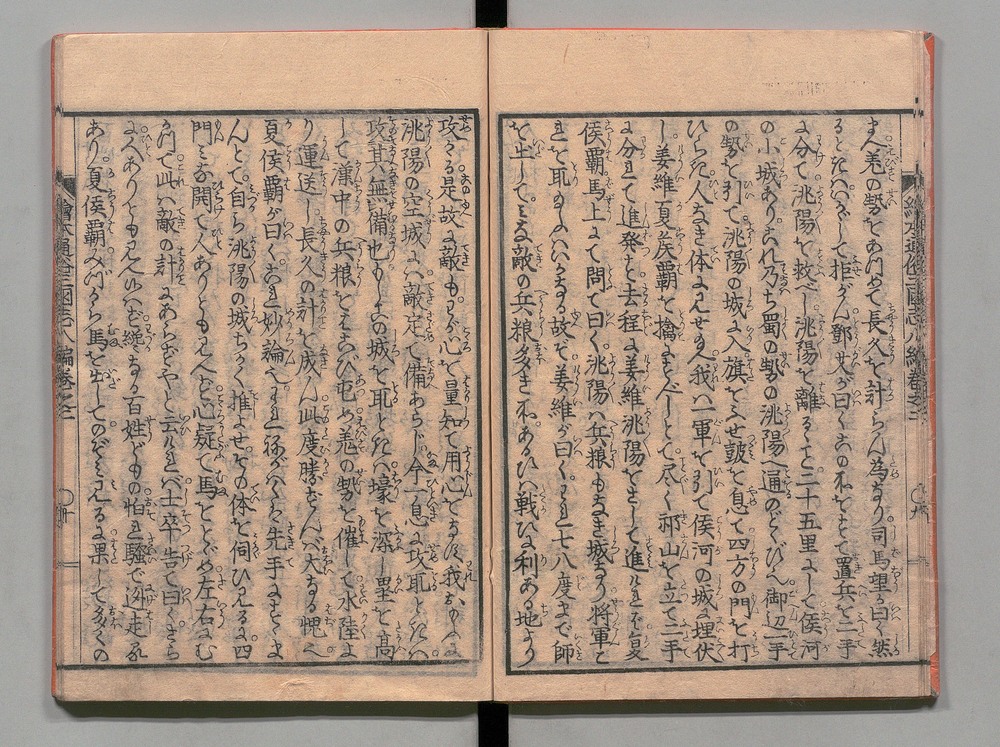 また羌の勢をあつめて長久を計らん為なり司馬望が曰く然
るときはいかにして拒がん鄧艾が曰くこの処をすてゝ置兵を二手
に分て洮陽を救べし洮陽を離るゝこと二十五里にして侯河
の小城ありこれ乃ち蜀の勢の洮陽へ通ののどくびなり御辺一手
の勢を引て洮陽の城に入旗をふせ鼓を息て四方の門を打
ひらき人なき体に見せ玉へ我ハ一軍を引て侯河の城に埋伏
し姜維夏侯覇を擒にすべしとて尽く祁山を立て二手
に分れて進発す去程に姜維洮陽をさして進ければ夏
侯覇馬上にて問て曰く洮陽ハ兵粮もなき城なり将軍こ
れを取玉ハいかなる故ぞ姜維が曰くわれ七八度まで師
を出してみな敵の兵粮多き処あるひハ戦ひに利ある地より
攻たる是故に敵もわが心を量知て用心をなす我おもふに
洮陽の空城にハ敵定て備あらじ今一息に攻取ときハ
攻其無備也もしこの城を取ときハ壕を深し塁を高
して漢中の兵粮をはこび屯め羌の勢を催して水陸よ
り運送し長久の計を成ん此度勝ずんバ大なる愧なり
夏侯覇が曰くこれ妙論なりわれ祢がハくハ先手にすゝま
んとて自ら洮陽の城ちかく推よせその体を伺ひ見るに四
門みな開て人ありとも見へず心疑て馬をとゞめ左右にむ
かつて此ハ敵の計にあらずやと云ければ士卒告て曰くさら
に人ありとも見へ候ハず纔なる百姓どもの怕れ騒で逃走る
あり夏侯覇みづから馬を出してのぞミ見るに果して多くの
繪本通俗三國志八編巻之二
九
繪本通俗三國志八編巻之二
十